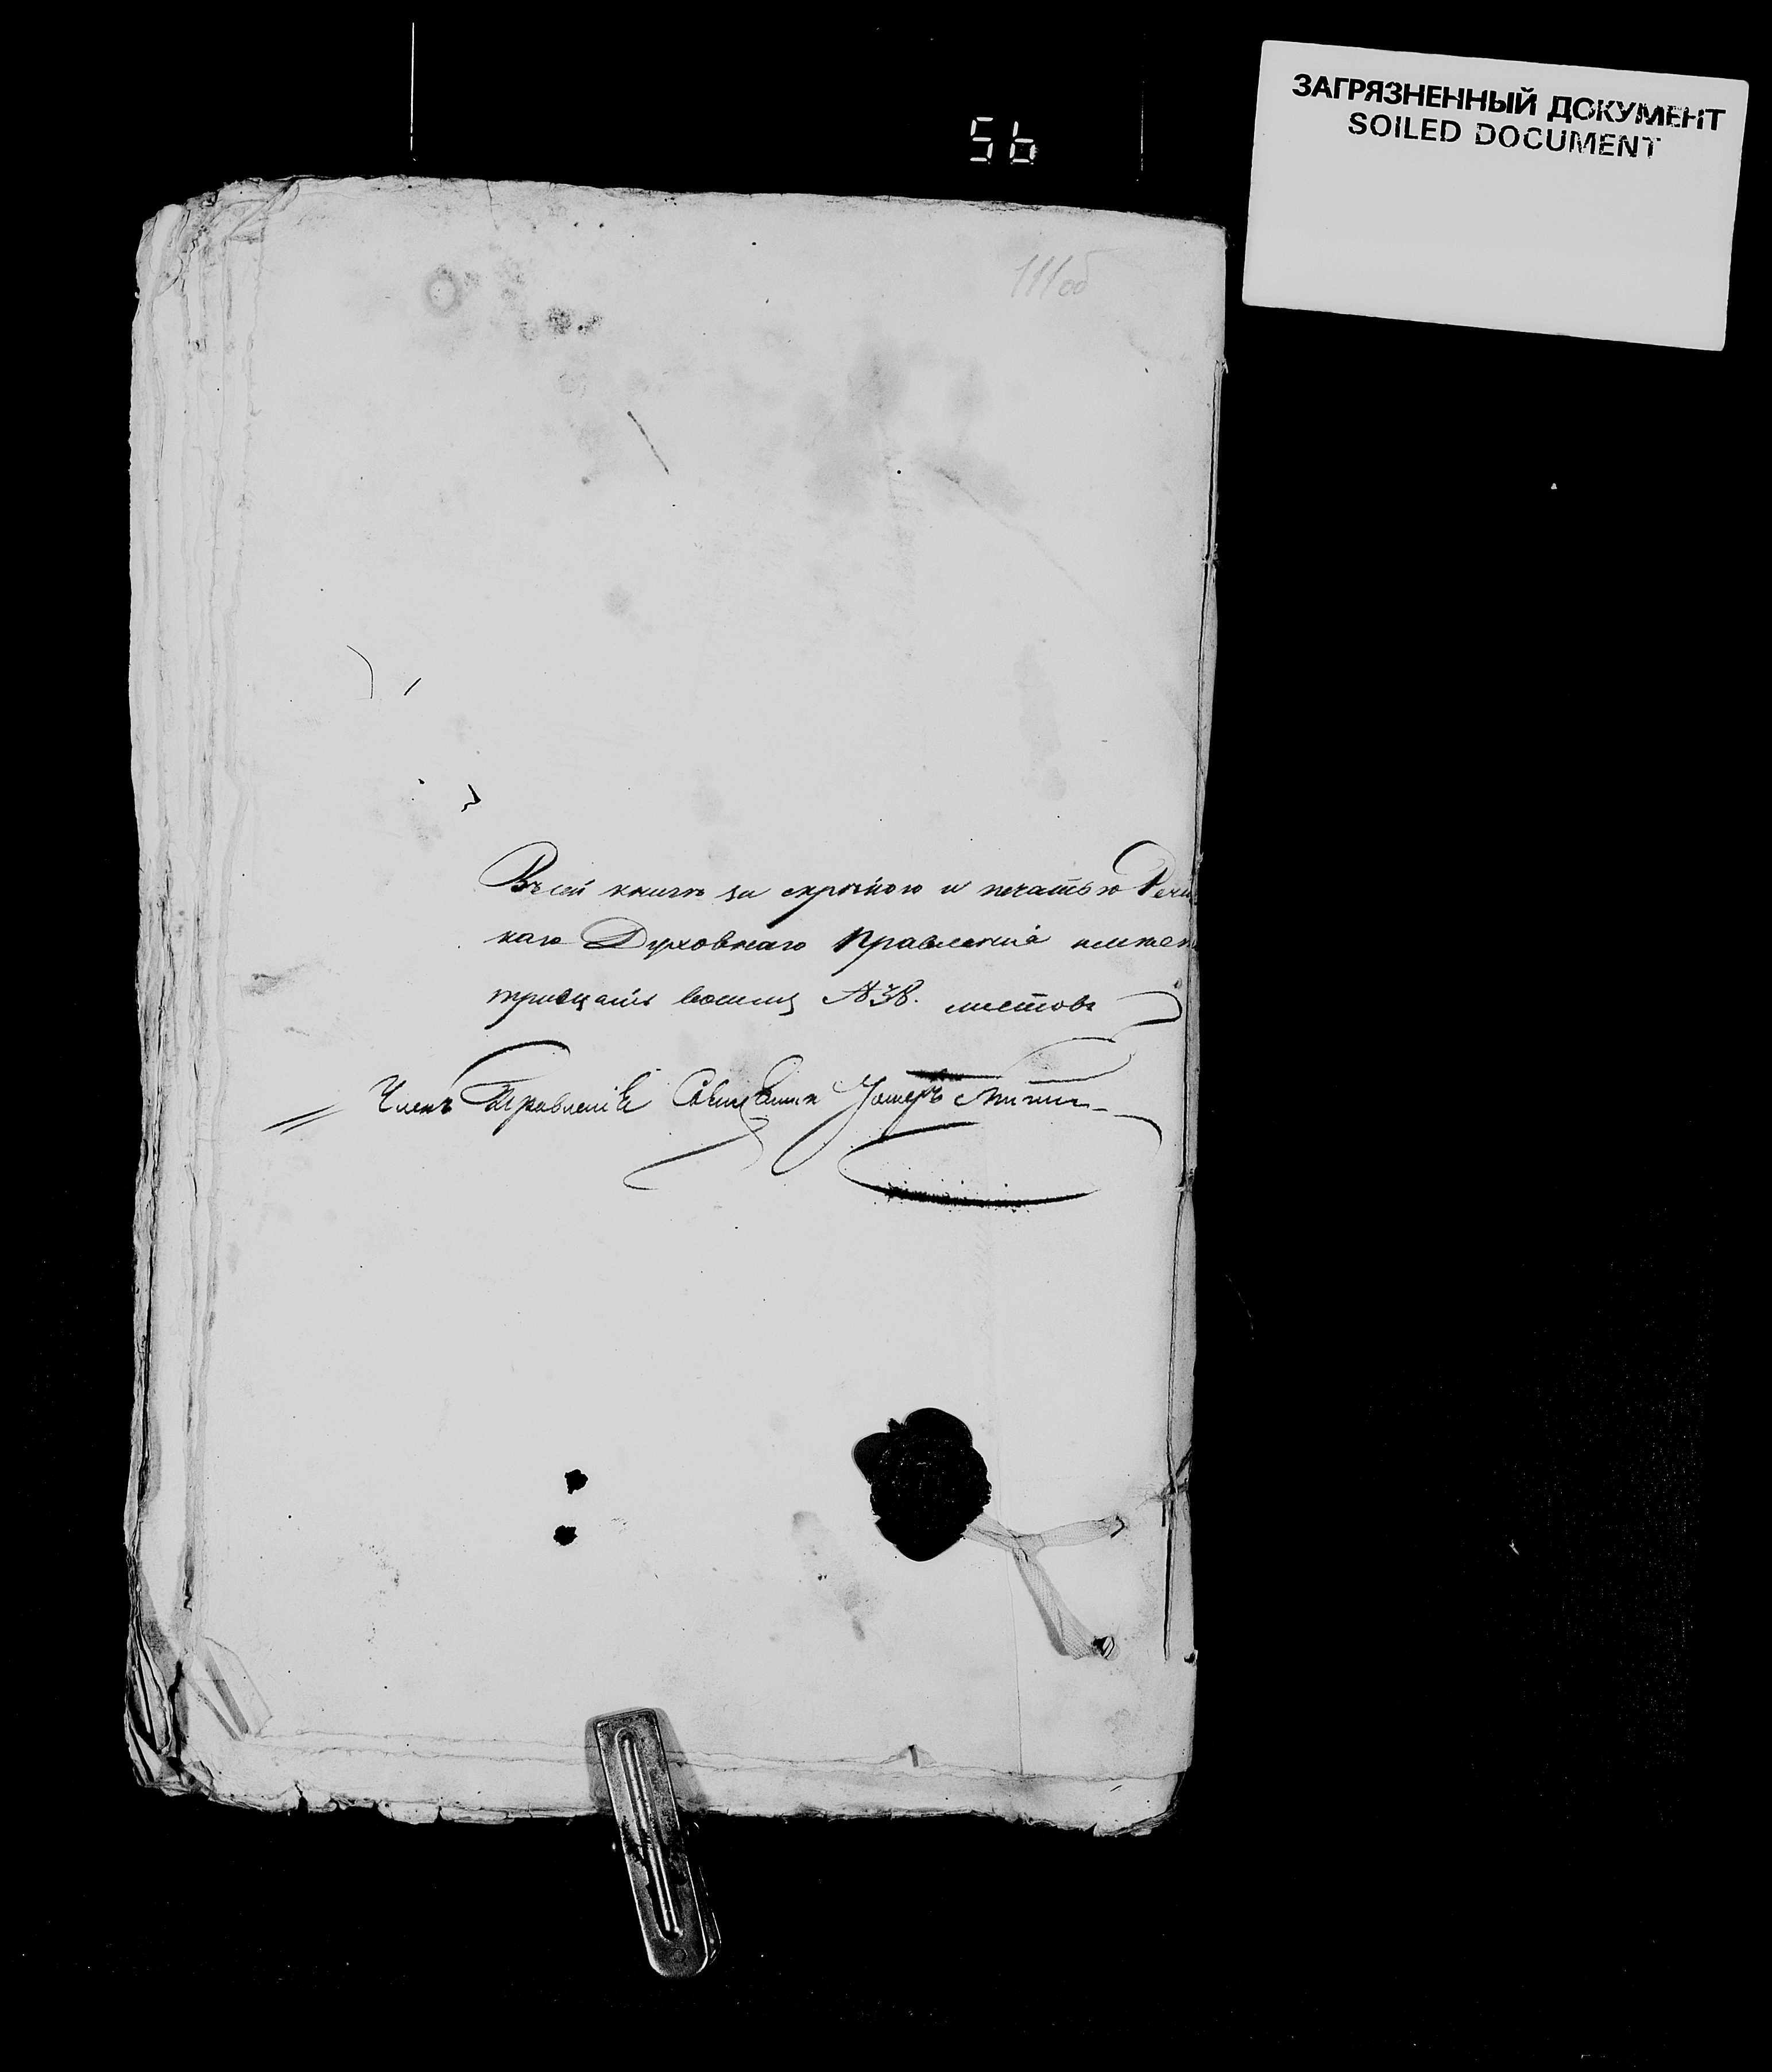 56
ЗАГРЯЗНЕННЫЙ ДОКУМЕНТ
SOILED DOCUMENT
111об
Въ сей книгѣ за скрѣпою и печатью Речи
каго Духовнаго Правленія
тридцать восемь №38. листовъ
Членъ Правленія Священникъ